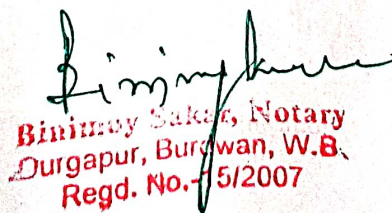 Binimoy Sakar, Notary
Durgapur, Burdwan, W.B.
Regd. No.- 5/2007